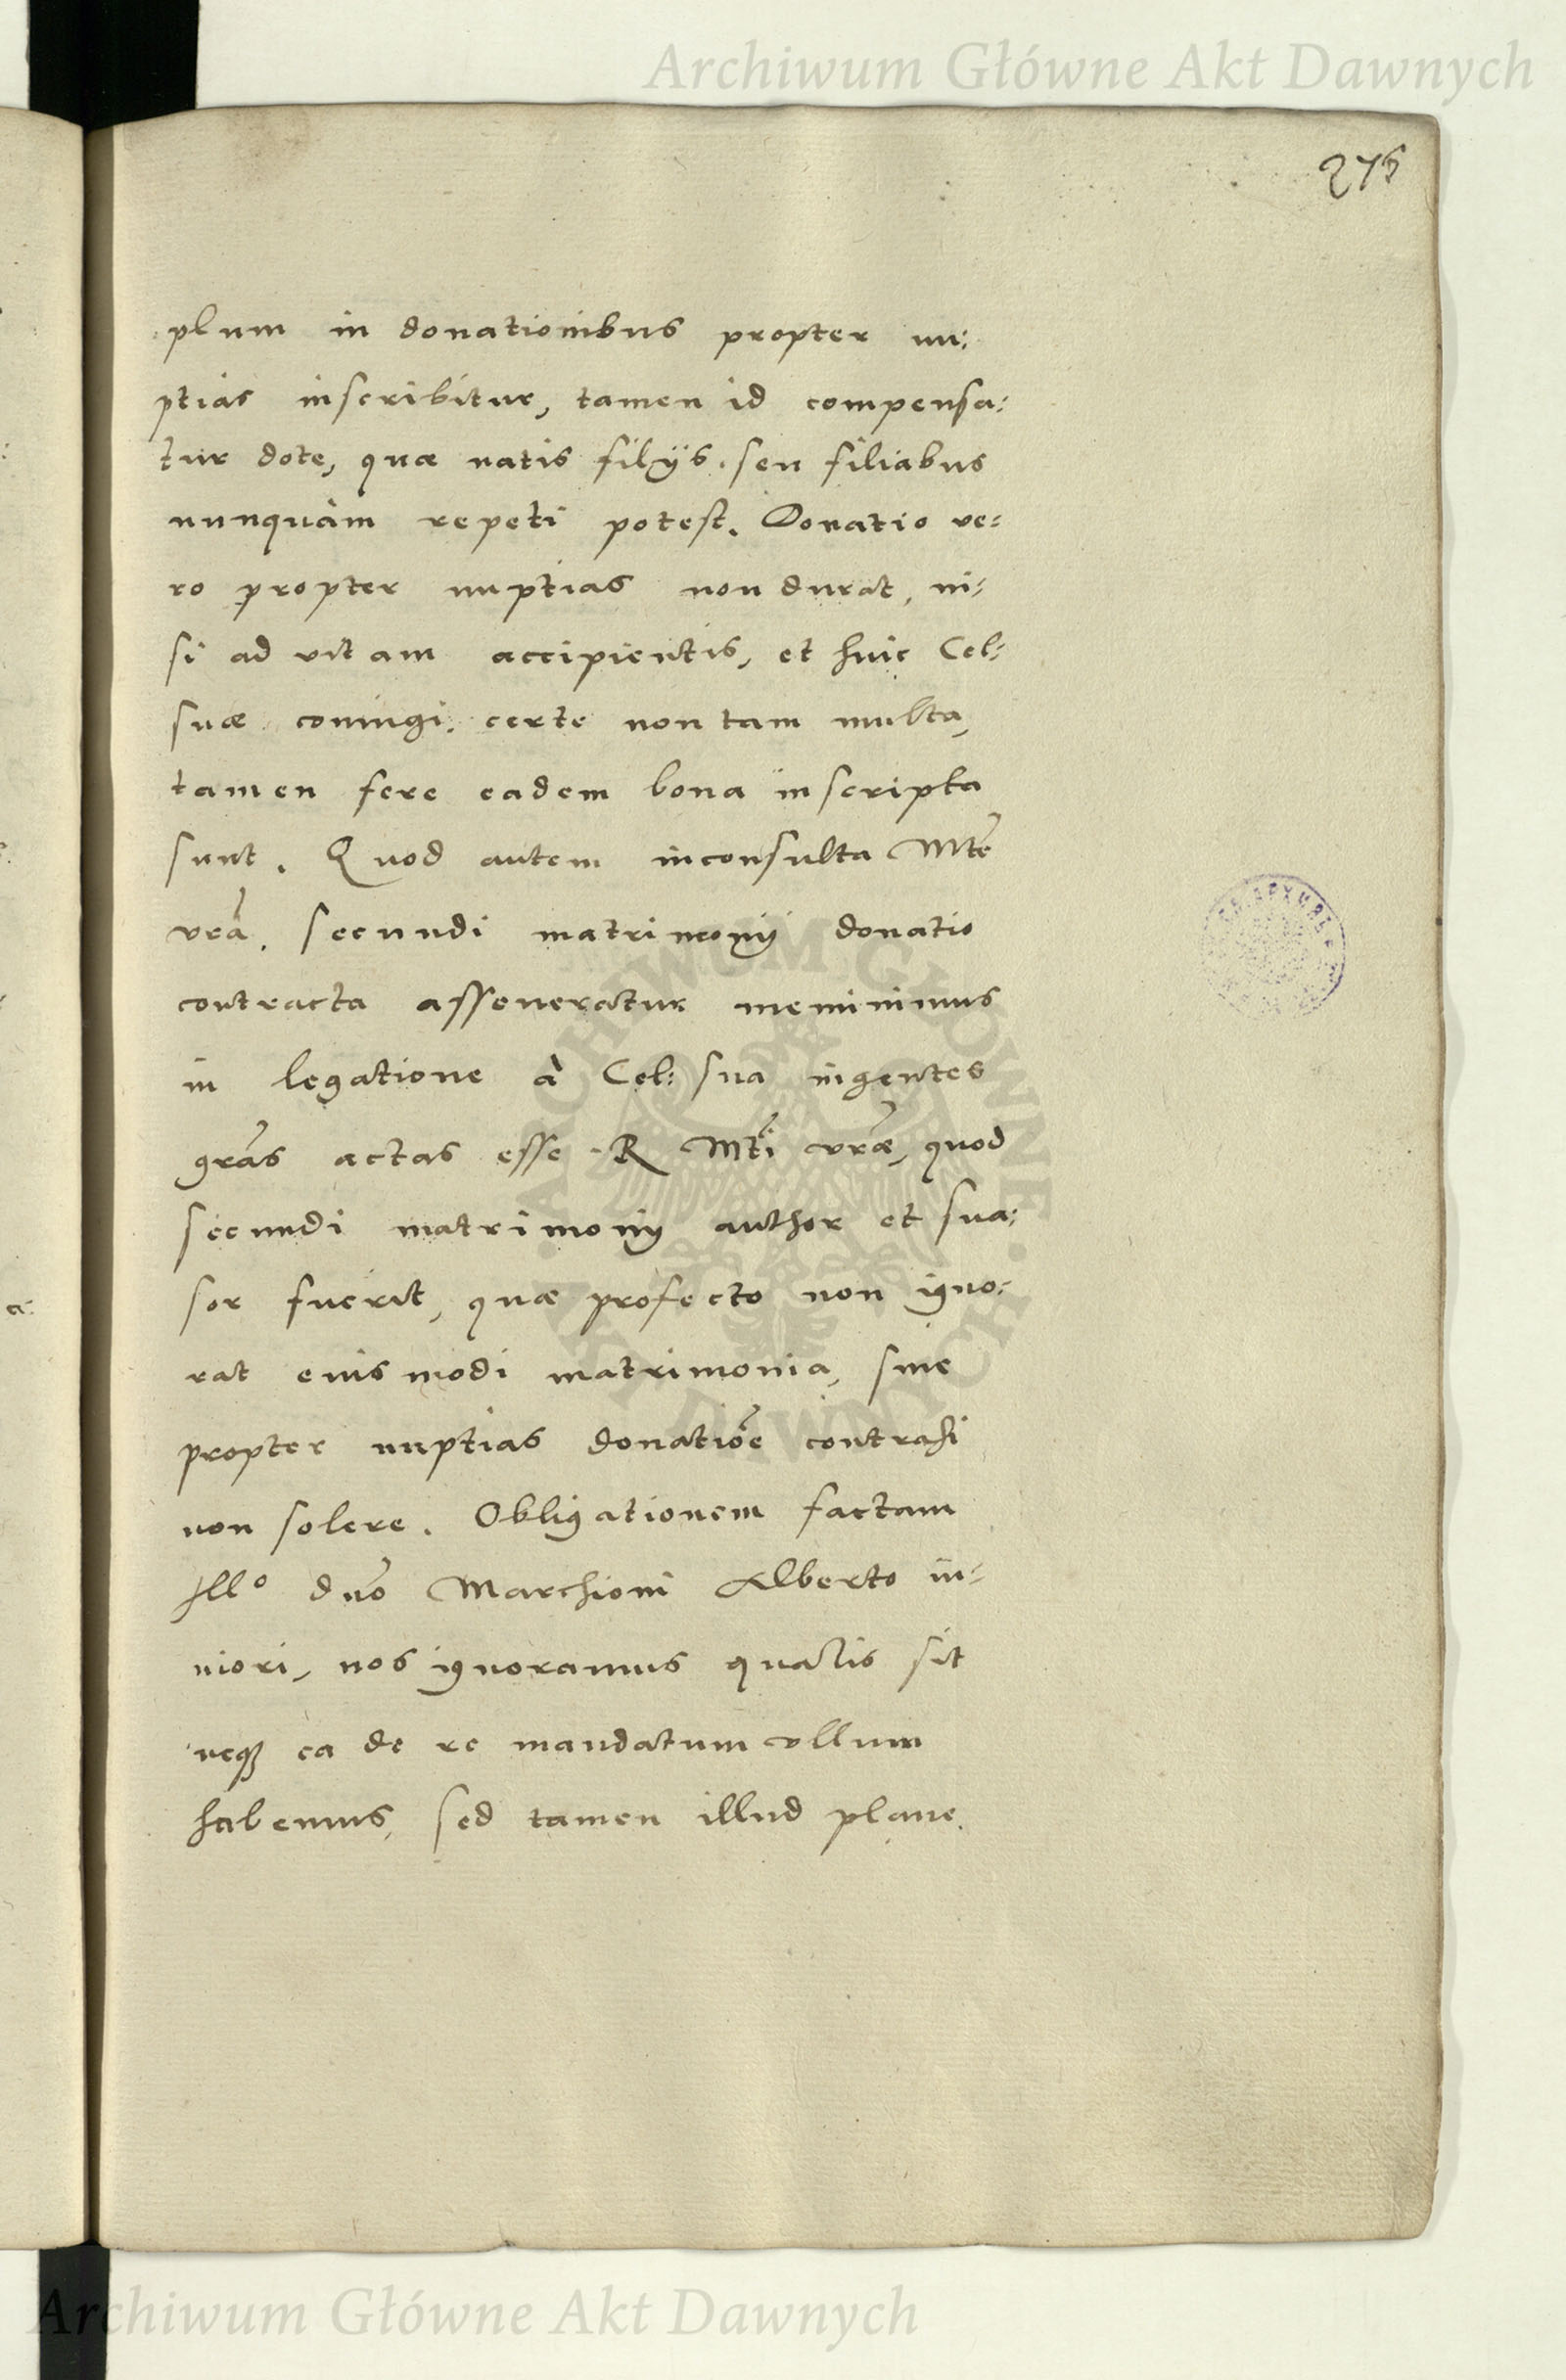 Archiwum Główne Akt Dawnych
275
plum in donationibus propter nu:
ptias inscribitur, tamen id compensa:
tur dote, quæ natis filijs. seu filiabus
nunquàm repeti potest. Donatio ve:
ro propter nuptias non durat, ni-
si ad vitam accipientis, et huic Cel:
suæ coniugi. certe non tam multa,
tamen fere eadem bona inscripta
sunt. Quod autem inconsulta Mte
vra. secundi matrimonij donatio
contracta asseueratur meminimus
in legatione à Cel: sua ingentes
gras actas esse R Mti vræ, quod
secundi matrimonij author et sua:
sor fuerit, quæ profecto non igno:
rat eius modi matrimonia, sine
propter nuptias donatioe contrahi
non solere. Obligationem factam
Illo dno Marchioni Alberto iu-
niori, nos ignoramus qualis sit
neqꝫ ea de re mandatum vllum
habemus, sed tamen illud plane.
Archiwum Główne Akt Dawnych